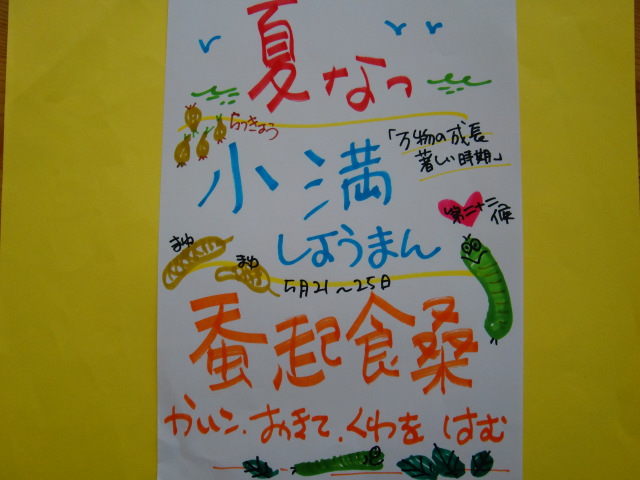 夏 なつ
らっきょう
小満
「万物の成長
著しい時期」
第二十二候
しょうまん
まゆ
まゆ
5月21～25日
蚕起食桑
かいこ.おきて.くわを はむ